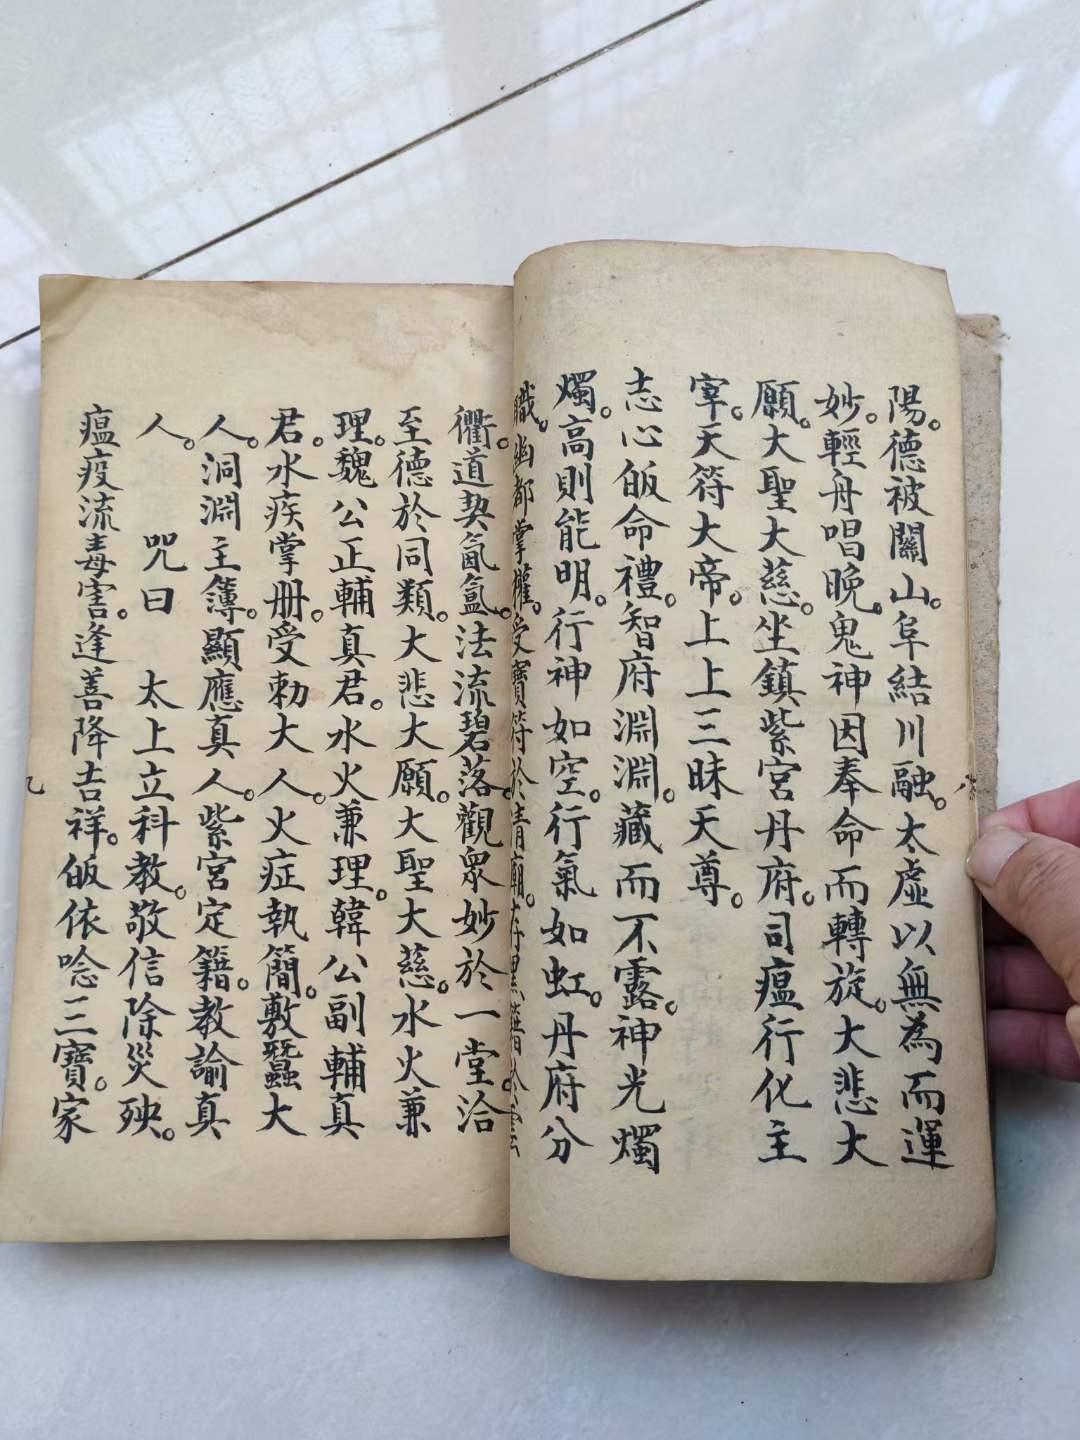 陽。德被關山。阜結川融。太虛以無為而運
妙。輕舟唱晚。鬼神因奉命而轉旋。大悲大
願。大聖大慈。坐鎮紫宮丹府。司瘟行化主
宰。天符大帝。上上三昧天尊。
志心皈命禮。智府淵淵。藏而不露。神光燭
燭。高則能明。行神如空。行氣如虹。丹府分
職。幽都掌權。受寶符於清廟。
衢。道契氤氳。法流碧落。觀衆妙於一堂。洽
至德於同類。大悲大願。大聖大慈。水火兼
理。魏公正輔真君。水火兼理。韓公副輔真
君。水疾掌册。受勅大人。火症執簡。敷蠶大
人。洞淵主簿。顯應真人。紫宮定籍。教諭真
人。 咒曰 太上立科教。敬信除災殃。
瘟疫流毒害。逢善降吉祥。皈依唸三寶。家
八
乙